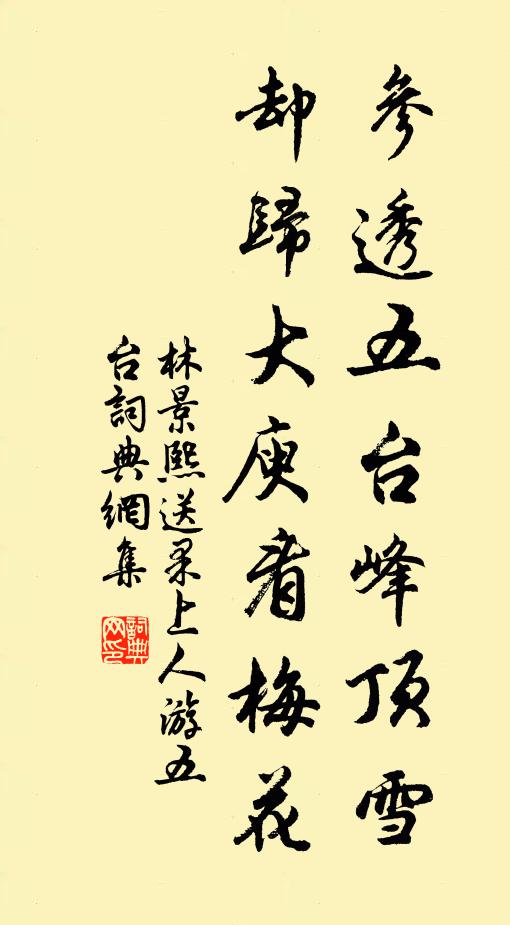 參透五台峰頂雪
却歸大庾看梅花
林景熙送果上人游五
台詞典網集
詞典
网印